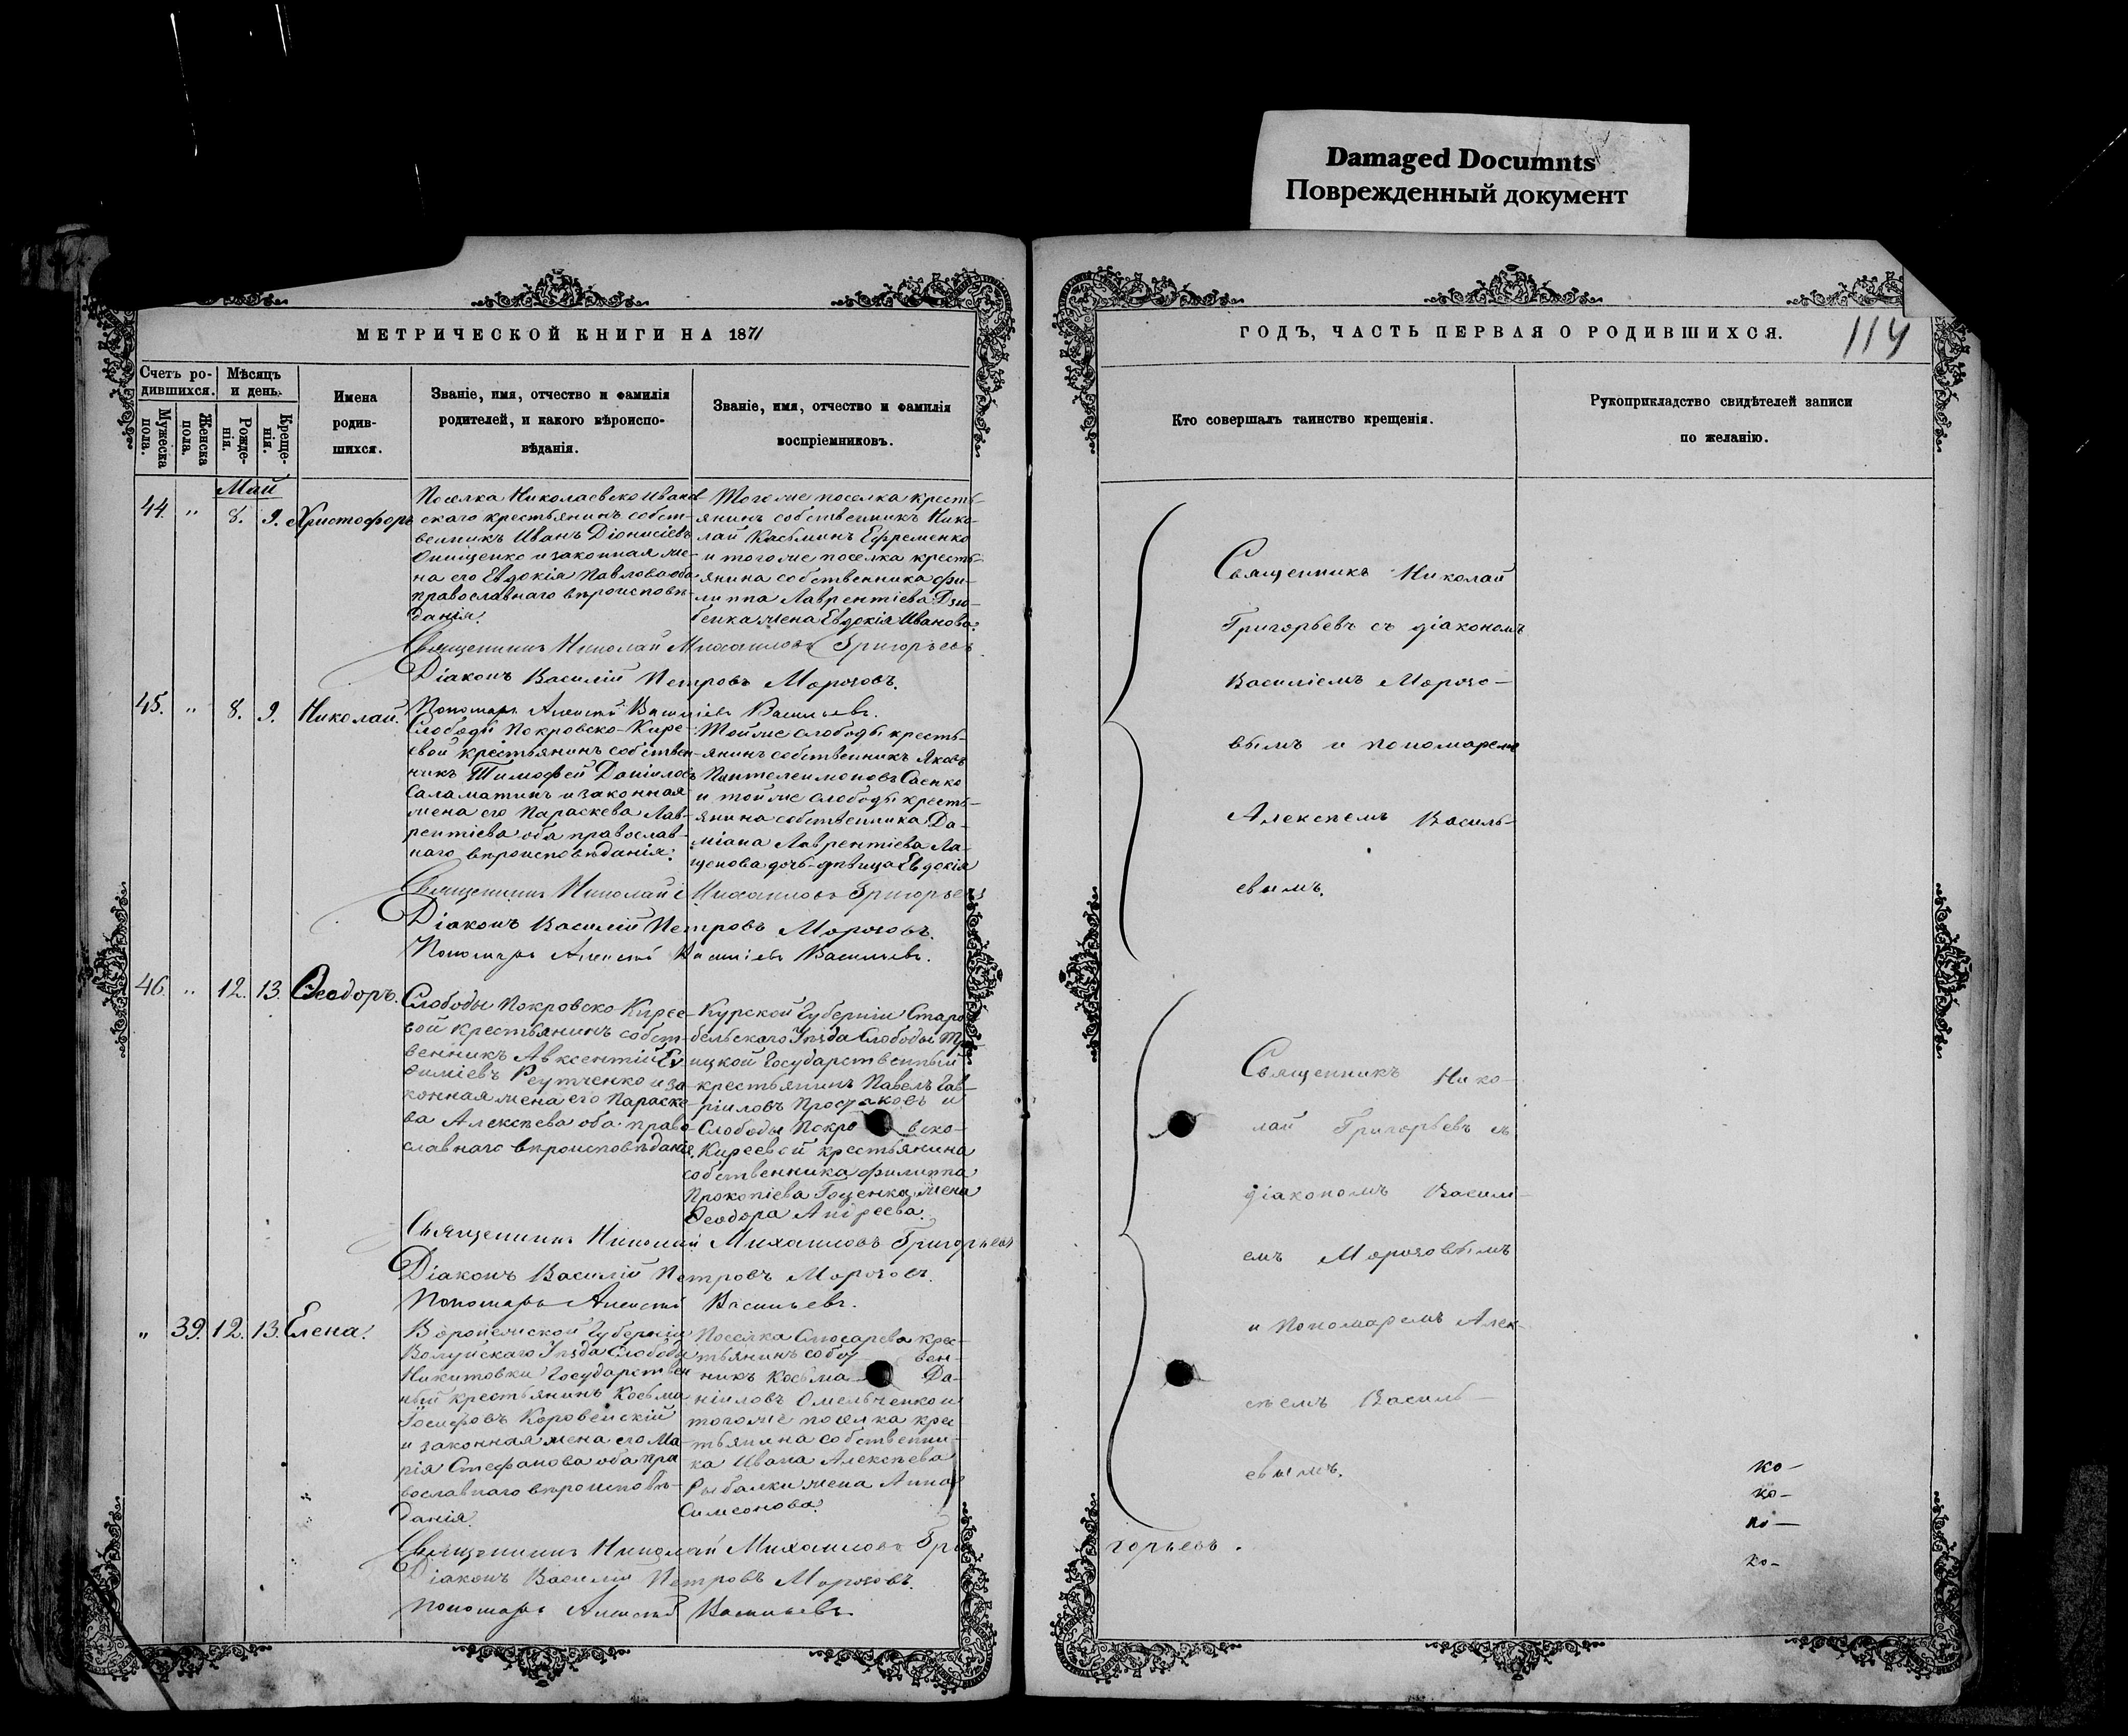 Damaged Documnts
Поврежденный документ
МЕТРИЧЕСКОЙ КНИГИ НА 1871
Счетъ ро-
дившихся.
Мѣсяцъ
и день.
Мужеска
пола.
Женска
пола.
Рожде-
нія.
Креще-
нія.
Имена
родив-
шихся.
Званіе, имя, отчество и фамилія
родителей, и какого вѣроиспо-
вѣданія.
Званіе, имя, отчество и фамилія
воспріемниковъ.
Май
44. " 8. 9. Христофоръ
Поселка Николаевско Иванов
скаго крестьянинъ собст-
венникъ Иванъ Діонисіевъ
Онищенко и законная же-
на его Евдокія Павлова оба
православнаго вѣроисповѣ-
данія.
Тогоже поселка кресть-
янинъ собственникъ Нико-
лай Касьминъ Ефременко
и тогоже поселка кресть-
янина собственника Фи-
липпа Лаврентіева Дзю-
бенка жена Евдокія Иванова.
Священникъ Николай Михаиловъ Григорьевъ.
Діаконъ Василій Петровъ Морозовъ.
Пономарь Алексѣй Васильевъ.
45. " 8. 9. Николай.
Слободы Покровско-Кире-
евой крестьянинъ собствен-
никъ Тимофей Даніиловъ
Саламатинъ и законная
жена его Параскева Лав-
рентіева оба православ-
наго вѣроисповѣданія.
Тойже слободы кресть-
янинъ собственникъ Яковъ
Пантелеимоновъ Саенко
и тойже слободы кресть-
янина собственника Да-
міана Лаврентіева Ла-
щенова дочь-дѣвица Евдокія
Священникъ Николай Михаиловъ Григорьевъ
Діаконъ Василій Петровъ Морозовъ.
Пономарь Алексѣй Васильевъ.
46. " 12. 13. Ѳеодоръ.
Слободы Покровско Кирее-
вой крестьянинъ собст-
венникъ Авксентій Ев
ѳиміевъ Реутченко и за-
конная жена его Параске-
ва Алексѣева оба право-
славнаго вѣроисповѣданія.
Курской Губерніи Старо
бельскаго Уѣзда Слободы Тро
ицкой Государственный
крестьянинъ Павелъ Гав-
ріиловъ Просяковъ и
Слободы Покровско-
Киреевой крестьянина
собственника Филиппа
Прокопіева Гоценка жена
Ѳеодора Андреева.
Священникъ Николай Михаиловъ Григорьевъ
Діаконъ Василій Петровъ Морозовъ.
Пономарь Алексѣй Васильевъ.
" 39. 12. 13. Елена.
Воронежской Губерніи
Волуйскаго Уѣзда Слободы
Никитовки Государствен
ный крестьянинъ Косьма
Іосифовъ Коровейскій
и законная жена его Ма-
рія Стефанова оба пра
вославнаго вѣроисповѣ-
данія.
Поселка Слюсарева крес-
тьянинъ собст вен-
никъ Косьма Да-
ніиловъ Омельченко и
тогоже поселка крес
тьянина собственни-
ка Ивана Алексѣева
Рыбалки жена Анна
Симеонова.
Священникъ Николай Михаиловъ Григорьевъ.
Діаконъ Василій Петровъ Морозовъ.
Пономарь Алексѣй Васильевъ
ГОДЪ, ЧАСТЬ ПЕРВАЯ О РОДИВШИХСЯ.
114
Кто совершалъ таинство крещенія.
Рукоприкладство свидѣтелей записи
по желанію.
Священникъ Николай
Григорьевъ съ діакономъ
Василіемъ Морозо-
вымъ и пономаремъ
Алексѣемъ Василь-
евымъ.
Священникъ Нико-
лай Григорьевъ съ
діакономъ Васили-
емъ Морозовымъ
и Пономаремъ Алек-
сѣемъ Василь-
евымъ.
ко-
ко-
по-
ко-